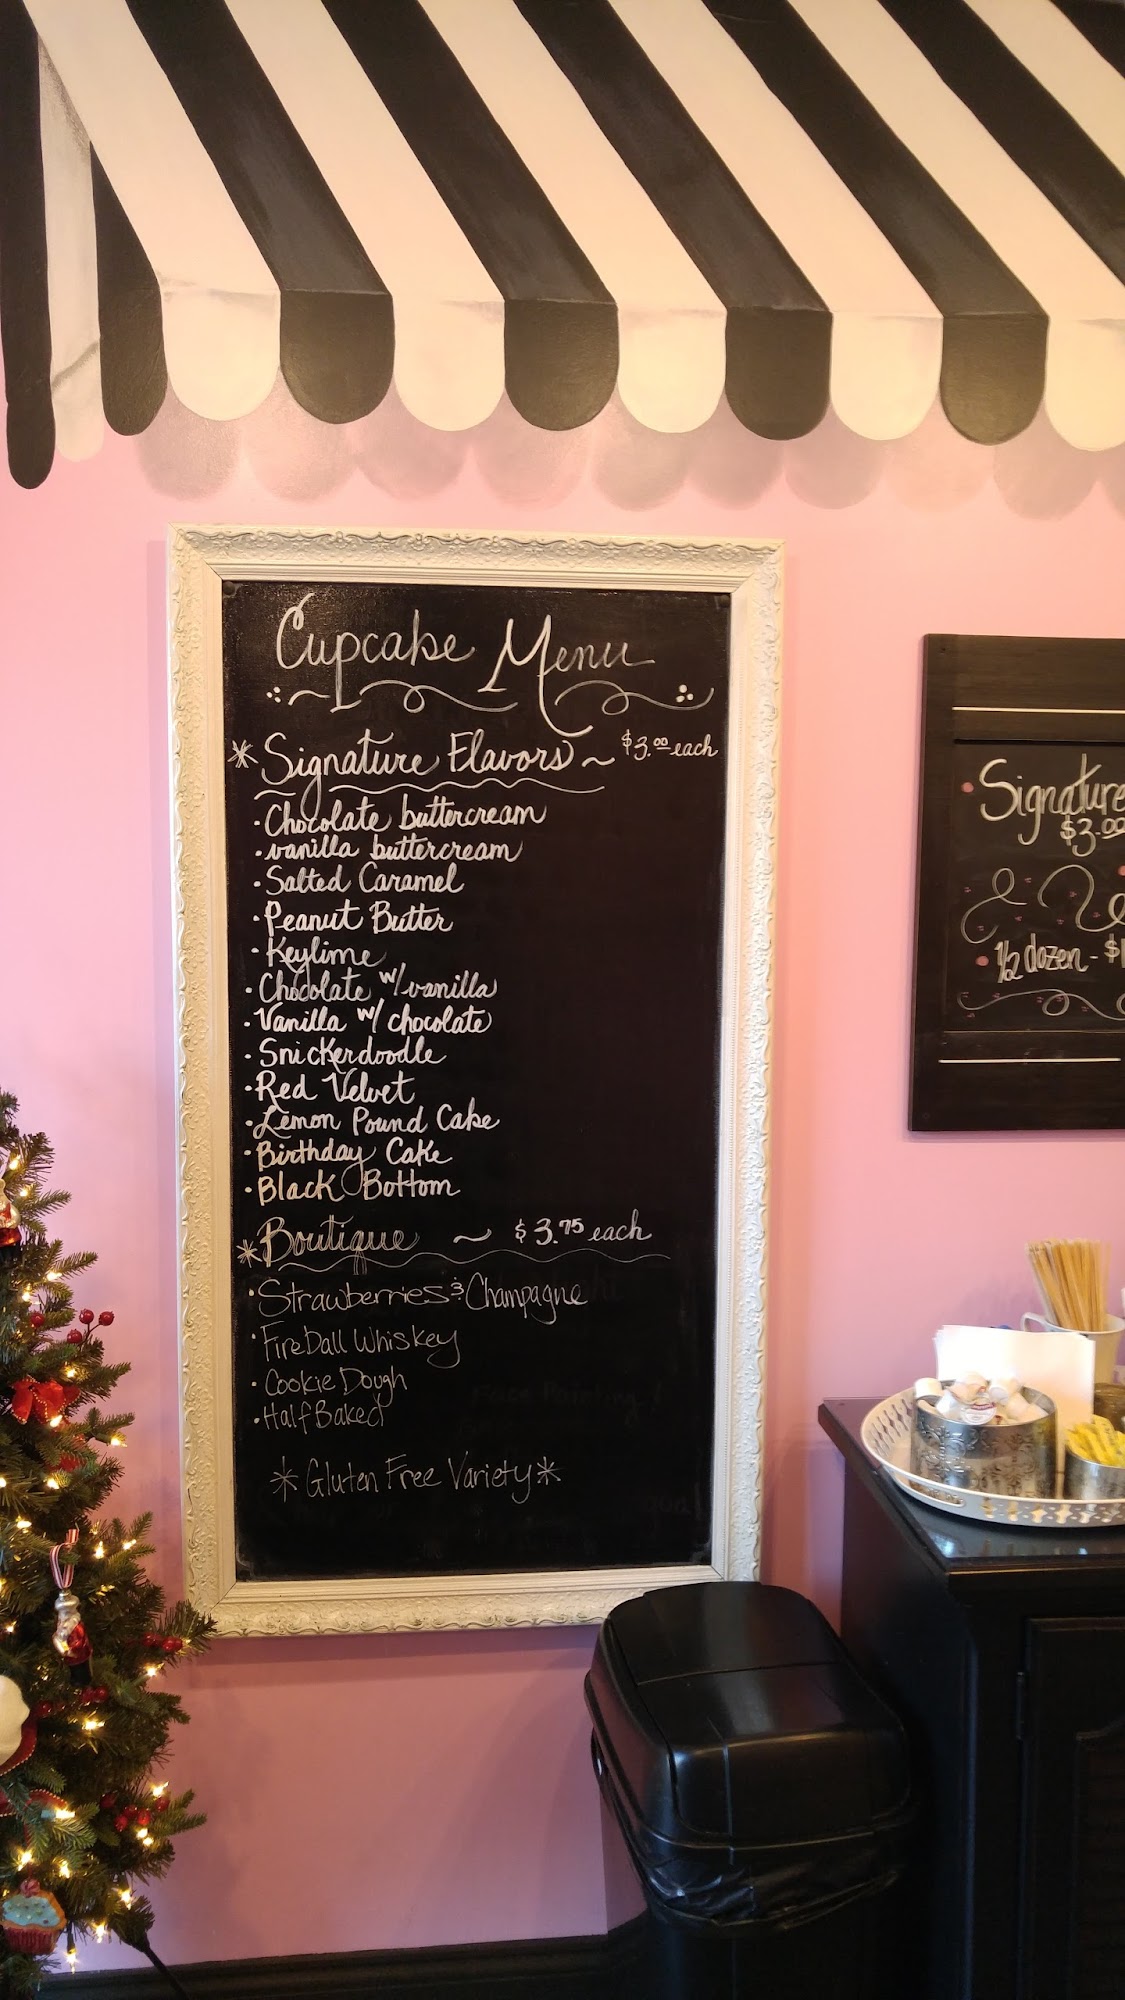 Cupcake Menu
* Signature Flavors ~ $3.00 each
· Chocolate buttercream
· vanilla buttercream
· Salted Caramel
· Peanut Butter
· Keylime
· Chocolate w/ vanilla
· Vanilla w/ chocolate
· Snickerdoodle
· Red Velvet
· Lemon Pound Cake
· Birthday Cake
· Black Bottom
* Boutique ~ $3.75 each
· Strawberries & Champagne
· FireBall Whiskey
· Cookie Dough
· Half Baked
* Gluten Free Variety *
Signature
$3.00
1/2 dozen - $1